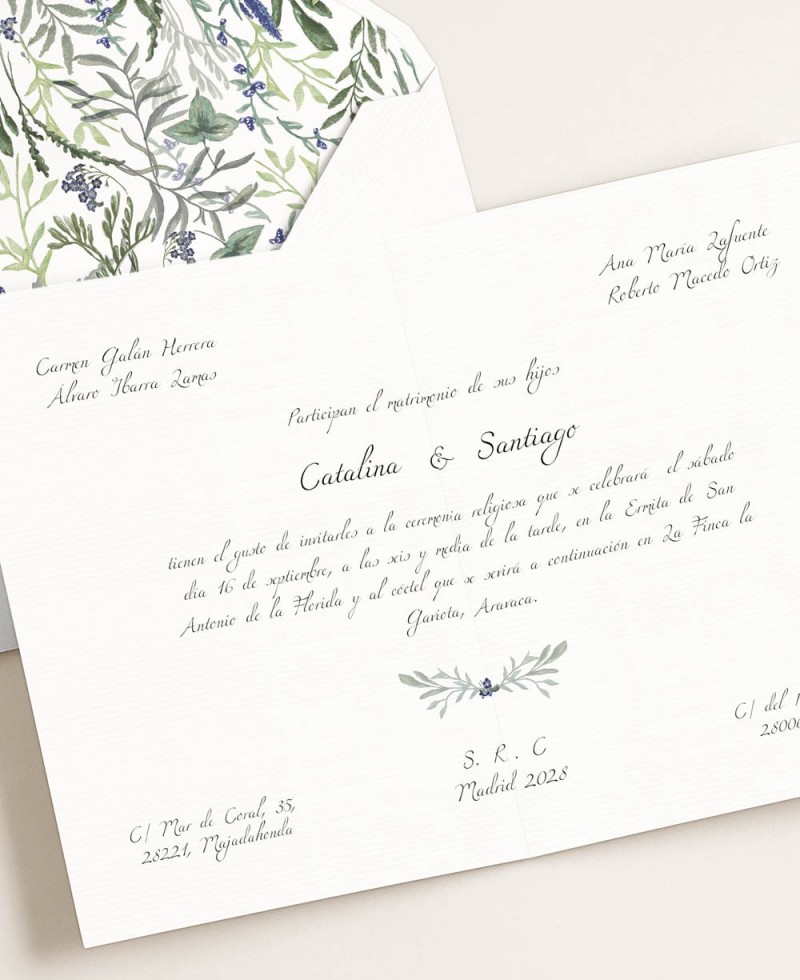 Carmen Galán Herrera
Álvaro Ibarra Lamas
Ana María Lafuente
Roberto Macedo Ortiz
Participan el matrimonio de sus hijos
Catalina & Santiago
tienen el gusto de invitarles a la ceremonia religiosa que se celebrará el sábado
día 16 de septiembre, a las seis y media de la tarde, en la Ermita de San
Antonio de la Florida y al cóctel que se sevirá a continuación en La Finca la
Gaviota, Aravaca.
S. R. C
Madrid 2028
C/ Mar de Coral, 35,
28221, Majadahonda
C/ del